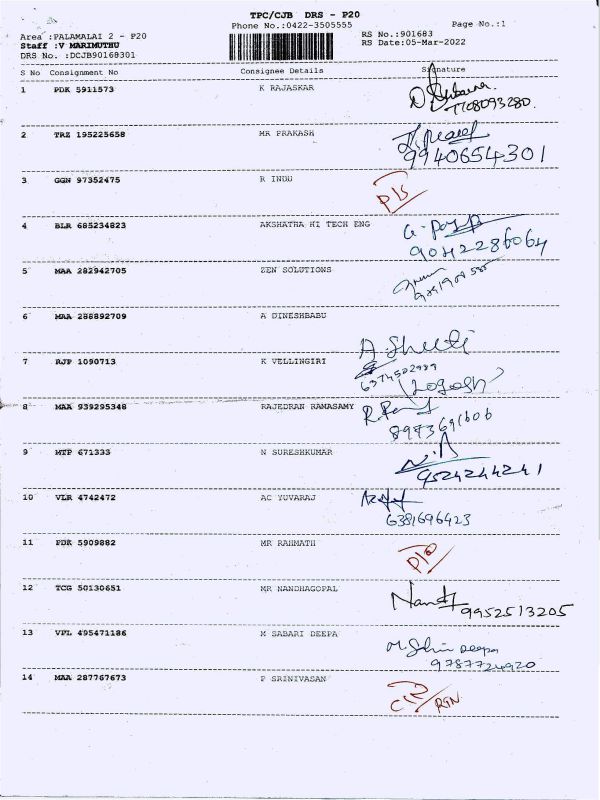 TPC/CJB DRS - P20
Phone No.:0422-3505555
Page No.:1
Area :PALAMALAI 2 - P20
Staff :V MARIMUTHU
DRS No. :DCJB90168301
RS No.:901683
RS Date:05-Mar-2022
S No Consignment No Consignee Details Signature
1 PDK 5911573 K RAJASKAR
7708093280.
2 TRZ 195225658 MR PRAKASH
9940654301
3 GGN 97352475 R INDU
4 BLR 685234823 AKSHATHA HI TECH ENG
9042286064
5 MAA 282942705 ZEN SOLUTIONS
6 MAA 288892709 A DINESHBABU
7 RJP 1090713 K VELLINGIRI
8 MAA 939295348 RAJEDRAN RAMASAMY
8973691606
9 MTP 671333 N SURESHKUMAR
9524244241
10 VLR 4742472 AC YUVARAJ
6381696423
11 PDK 5909882 MR RAHMATH
12 TCG 50130651 MR NANDHAGOPAL
9952513205
13 VPL 495471186 M SABARI DEEPA
Deepa
9787724920
14 MAA 287767673 P SRINIVASAN
RTN